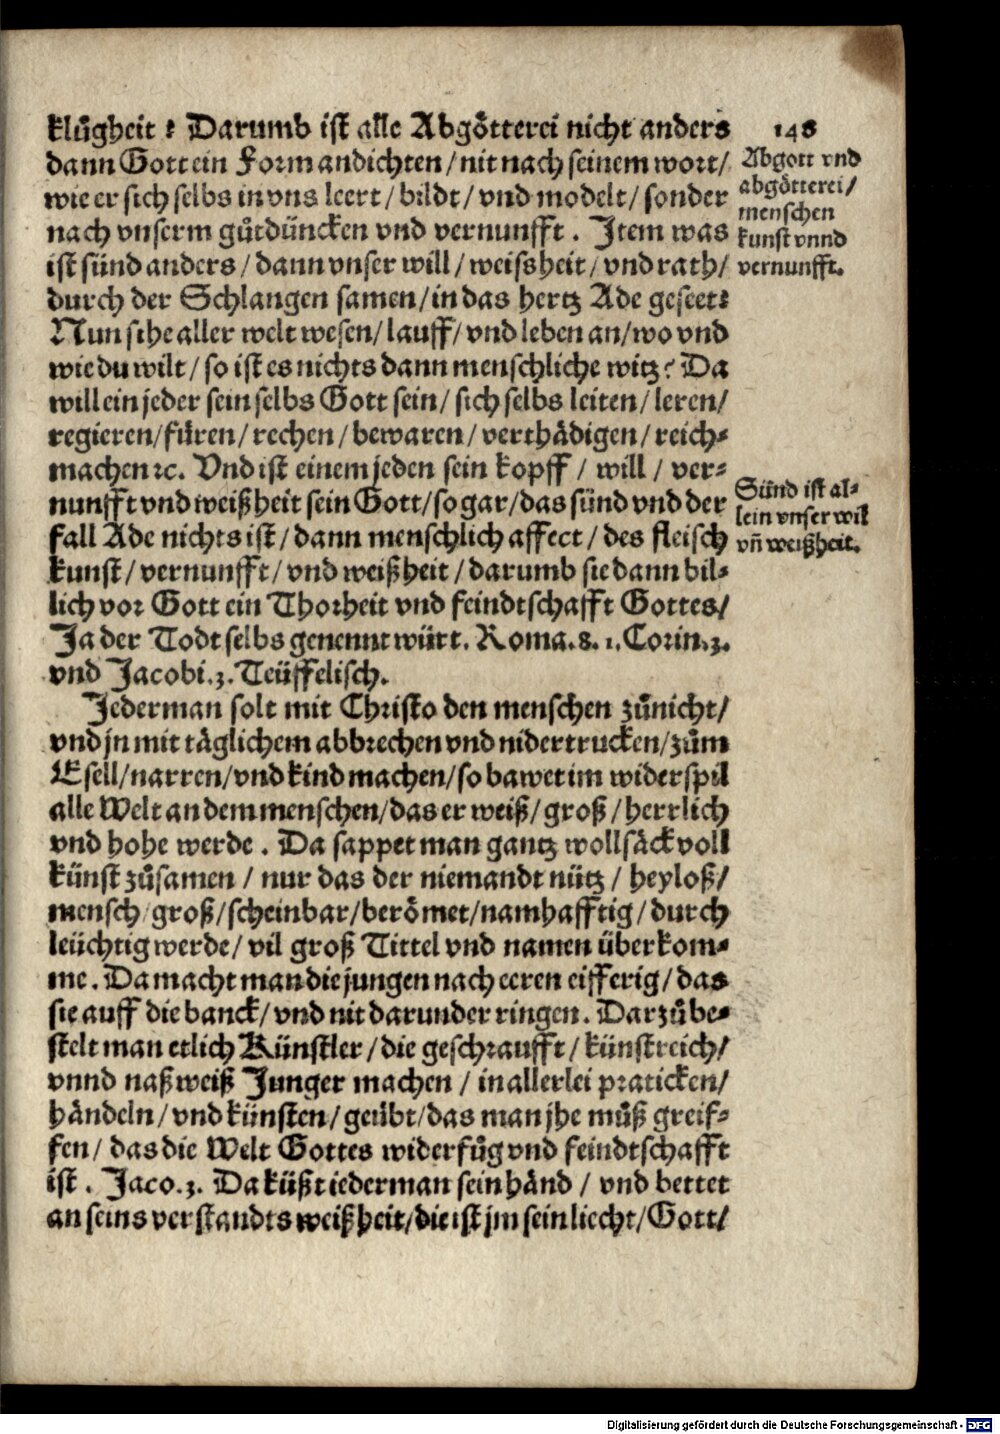 klůgheit ? Darumb ist alle Abgötterei nicht anders
dann Gott ein Form andichten / nit nach seinem wort /
wie er sich selbs in vns leert / bildt / vnd modelt / sonder
nach vnserm gůtdüncken vnd vernunfft . Item was
ist sünd anders / dann vnser will / weissheit / vnd rath /
durch der Schlangen samen / in das hertz Ade geseet ?
Nun sihe aller welt wesen / lauff / vnd leben an / wo vnd
wie du wilt / so ist es nichts dann menschliche witz ? Da
will ein jeder sein selbs Gott sein / sich selbs leiten / leren /
regieren / füren / rechen / bewaren / verthädigen / reich-
machen ꝛc. Vnd ist einem jeden sein kopff / will / ver-
nunfft vnd weißheit sein Gott / so gar / das sünd vnd der
fall Ade nichts ist / dann menschlich affect / des fleisch
kunst / vernunfft / vnd weißheit / darumb sie dann bil-
lich vor Gott ein Thorheit vnd feindtschafft Gottes /
Ja der Todt selbs genennt würt. Roma. 8. 1. Corin. 3.
vnd Jacobi. 3. Teüffelisch.
Jederman solt mit Christo den menschen zůnicht /
vnd jn mit täglichem abbrechen vnd nidertrucken / zům
Esell / narren / vnd kind machen / so bawet im widerspil
alle Welt an dem menschen / das er weiß / groß / herrlich
vnd hohe werde . Da sappet man gantz wollsäck voll
künst zůsamen / nur das der niemandt nütz / heyloß /
mensch groß / scheinbar / berömet / namhafftig / durch
leüchtig werde / vil groß Tittel vnd namen überkom-
me . Da macht man die jungen nach eeren eifferig / das
sie auff die banck / vnd nit darunder ringen . Darzů be-
stelt man etlich Künstler / die geschraufft / künstreich /
vnnd naßweiß Junger machen / in allerlei praticken /
händeln / vnd künsten / geübt / das man jhe můß greif-
fen / das die Welt Gottes widerfůg vnd feindtschafft
ist . Jaco. 3. Da küßt iederman sein händ / vnd bettet
an seins verstandts weißheit / die ist jm sein liecht / Gott /
148
Abgott vnd
abgötterei /
menschen
kunst vnnd
vernunfft.
Sünd ist al-
lein vnser wil
vn̄ weißheit.
Digitalisierung gefördert durch die Deutsche Forschungsgemeinschaft - DFG